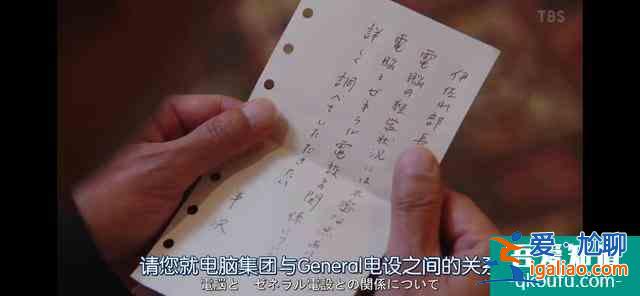 TBS
伊佐山部長
電脳の経営状況には不審な
電脳とゼネラル電設の関係につい
詳しく調べていただきたい
半沢
请您就电脑集团与General电设之间的关
電脳と ゼネラル電設との関係について
爱尬聊
ingaliao.com